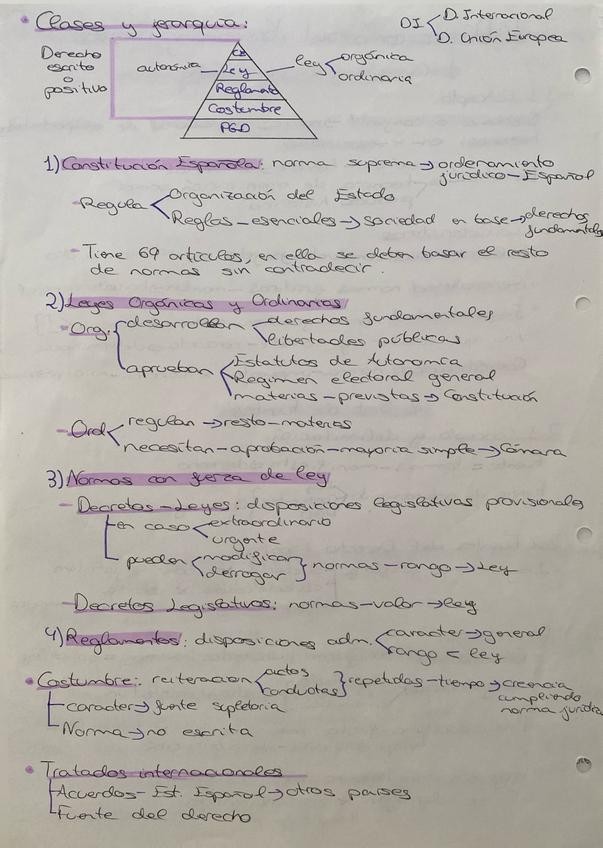 • Clases y jerarquía:
DI < D. Internacional
D. Unión Europea
Derecho
escrito
o
positivo
autonómia
CE
Ley
Reglamento
Costumbre
PGD
ley < orgánica
ordinaria
1) Constitución Española: norma suprema → ordenamiento
jurídico - Español
- Regula < Organización del Estado
Reglas - esenciales → sociedad en base → derechos
fundamentales
- Tiene 69 artículos, en ella se deben basar el resto
de normas sin contradecir.
2) Leyes Orgánicas y Ordinarias
- Org. { desarrollan < derechos fundamentales
libertades públicas
aprueban < Estatutos de Autonomía
Regimen electoral general
materias - previstas → Constitución
- Ord < regulan → resto - materias
necesitan - aprobación - mayoría simple → Cámara
3) Normas con fuerza de ley
- Decretos - Leyes: disposiciones legislativas provisionales
en caso < extraordinario
urgente
pueden < modificar
derogar } normas - rango → Ley
- Decretos Legislativos: normas - valor → ley
4) Reglamentos: disposiciones adm. < caracter → general
rango < ley
• Costumbre: reiteracion < actos
conductas } repetidas - tiempo → creencia
cumpliendo
norma jurídica
caracter → fuente supletoria
Norma → no escrita
• Tratados internacionales
Acuerdos - Est. Español → otros países
Fuente del derecho